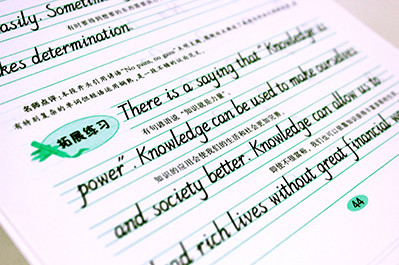 easily. Sometim
有时要得到想要的生
kes determination.
名师点评:本段开头引用谚语"No pains, no gains"
有特别复杂的单词但短语运用娴熟,是一段不错的议论范文。
拓展练习
There is a saying that "Knowledge is
有句谚语说,"知识就是力量"。
power". Knowledge can be used to make ourselves
知识的应用会使我们的生活和社会更加完善。
and society better. Knowledge can allow us to
即使不很富裕,我们也可以
and rich lives without great financial we
44